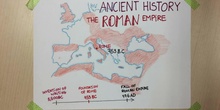 ANCIENT HISTORY
THE ROMAN EMPIRE
ROME
753 B.C.
INVENTION OF WRITING
FOUNDATION OF ROME
753 B.C.
FALL OF ROMAN EMPIRE
476 A.D.